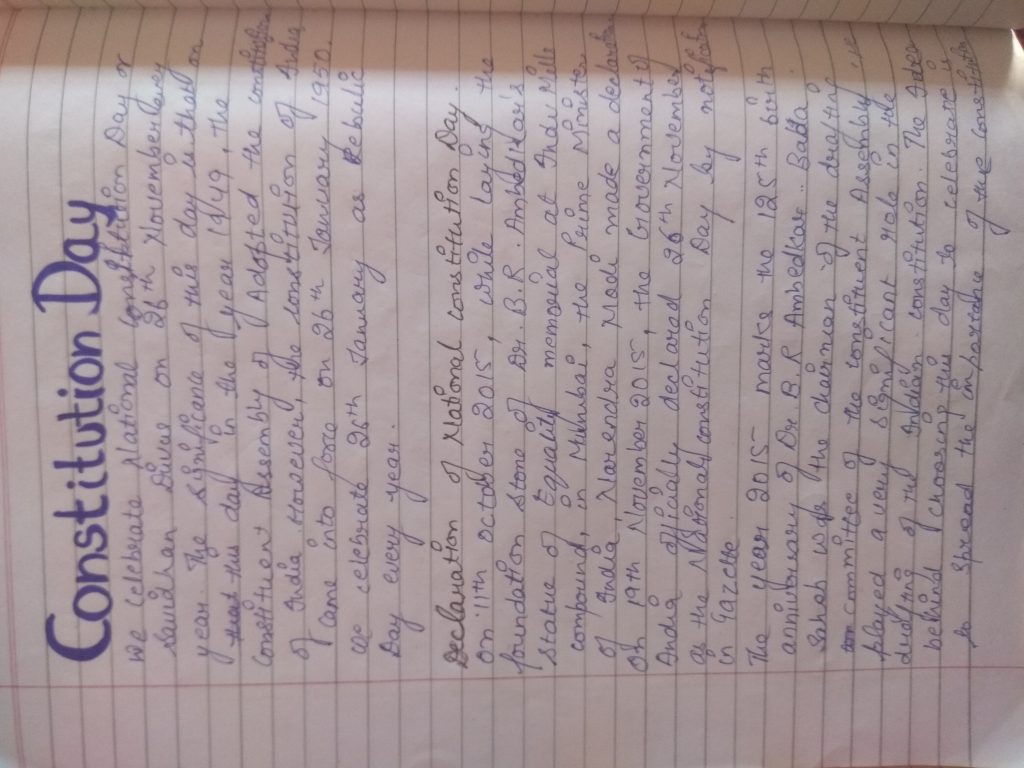 Constitution Day
we celebrate National Constitution Day or
Samvidhan Divas on 26th November every
year. The significance of this day is that on
that this day in the year 1949, the
Constituent Assembly of Adopted the constitution
of India However, the constitution of India
came into force on 26th January 1950.
we celebrate 26th January as Republic
Day every year.
Declaration of National constitution Day.
On 11th october 2015, while Laying the
foundation stone of Dr. B.R. Ambedkar's
statue of Equality memorial at Indu Mills
compound, in Mumbai, the Prime Minister
of India, Narendra Modi made a declaration
On 19th November 2015, the Government of
India officially declared 26th November
as the National constitution Day by notification
in Gazette.
The year 2015 marks the 125th birth
anniversary of Dr. B.R Ambedkar. Baba
Saheb was the chairman of the drafting
committee of the constituent Assembly
played a very significant role in the
of the Indian constitution. The Idea
behind choosing this day to celebrate is
to spread the importance of the constitution